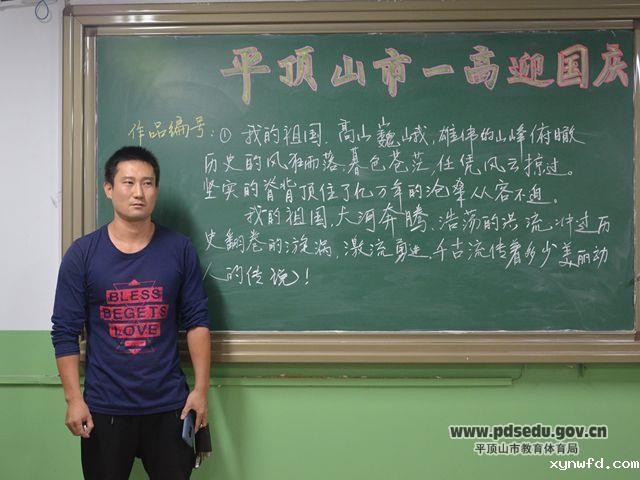 平顶山市一高迎国庆
作品编号:① 我的祖国,高山巍峨,雄伟的山峰俯瞰
历史的风狂雨落,暮色苍茫,任凭风云掠过。
坚实的脊背顶住了亿万年的沧桑从容不迫。
我的祖国,大河奔腾,浩荡的洪流,冲过历
史翻卷的漩涡,激流勇进,千古流传着多少美丽动
人的传说!
BLESS
BEGETS
LOVE
www.pdsedu.gov.cn
平顶山市教育体育局
xynwfd.com